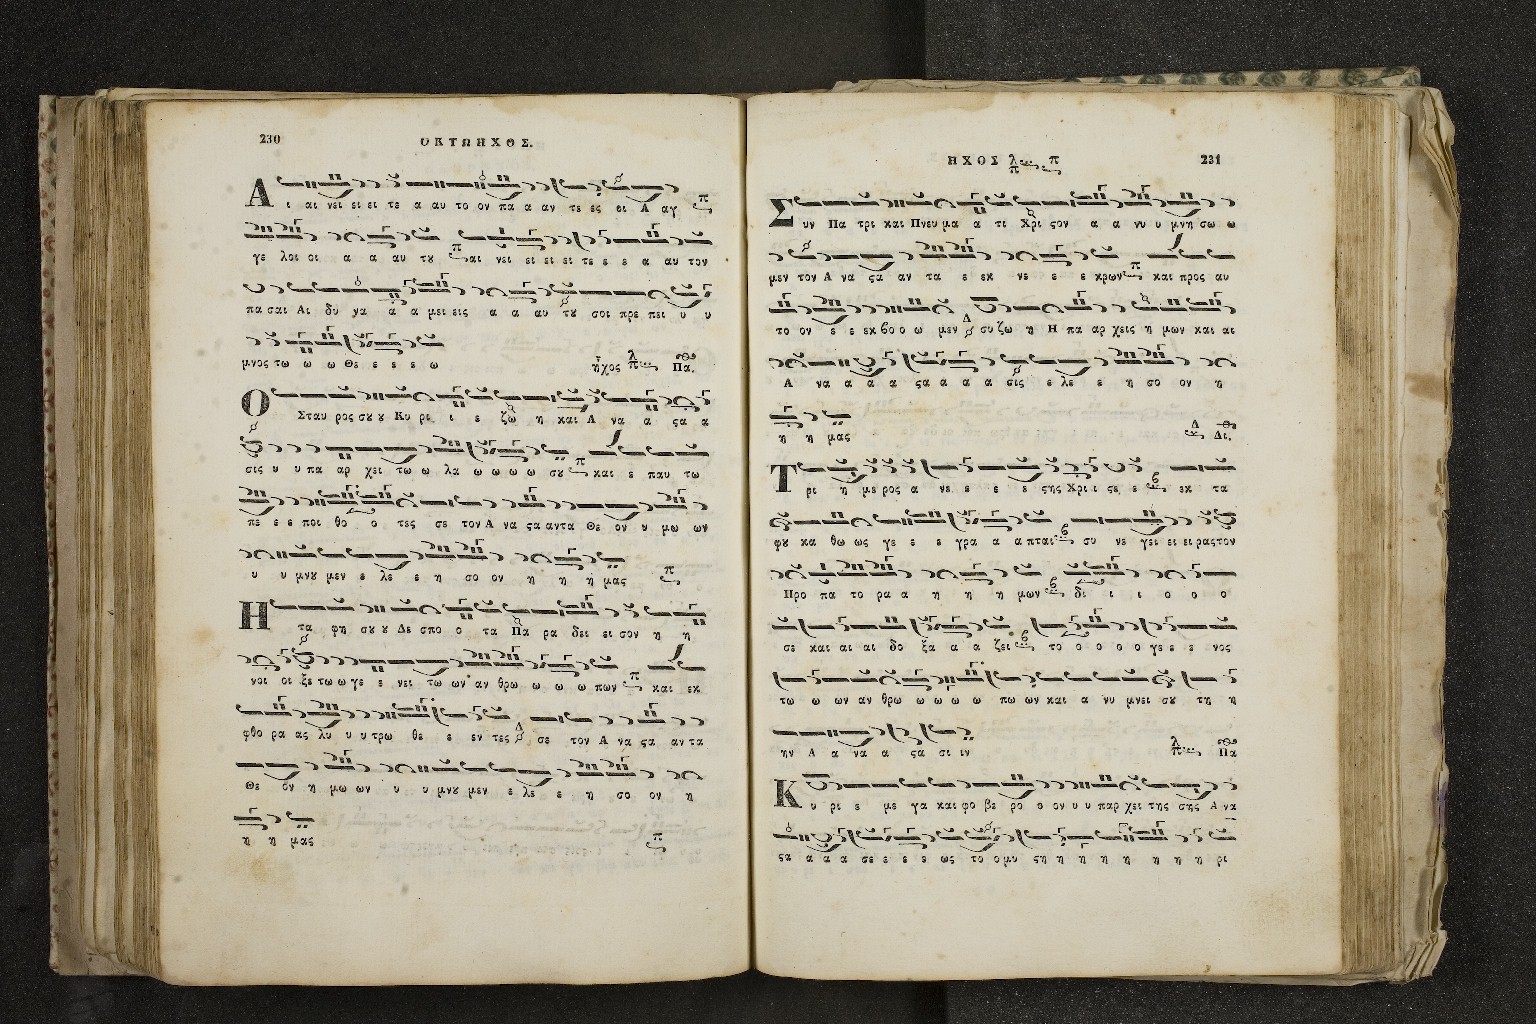 230
ΟΚΤΩΗΧΟΣ.
Α ι αι νει ει ει τε α αυ το ον πα α αν τε ες οι Α αγ
γε λοι οι α α αυ του αι νει ει ει ει τε ε ε α αυ τον
πα σαι Αι δυ να α α μει εις α α αυ του σοι πρε πει υ υ
μνος τω ω ω Θε ε ε ε ω ἦχος λ π Πα.
Ο Σταυ ρος σου ου Κυ ρι ι ε ζω η και Α να α ςα α
σις υ υ πα αρ χει τω ω λα ω ω ω ω σου και ε παυ τω
πε ε ε ποι θο ο τες σε τον Α να ςα αν τα Θε ον η μω ων
υ υ μνου μεν ε λε ε η σο ον η η η μας
Η τα φη σου ου Δε σπο ο τα Πα ρα δει ει σον η η
νοι οι ξε τω ω γε ε νει τω ων αν θρω ω ω ω πων και εκ
φθο ρα ας λυ υ υ τρω θε ε εν τες σε τον Α να ςα αν τα
Θε ον η μω ων υ υ μνου μεν ε λε ε η σο ον η
η η μας
ΗΧΟΣ λ π π
231
Συν Πα τρι και Πνευ μα α τι Χρι ςον α α νυ υ μνη σω ω
μεν τον Α να ςα αν τα ε εκ νε ε ε κρων και προς αυ
το ον ε ε εκ βο ο ω μεν συ ζω η Η πα αρ χεις η μων και αι
Α να α α α ςα α α α σις ε λε ε η σο ον η
η η μας Δι.
Τ ρι η με ρος α νε ε ε ε ςης Χρι ι ςε ε εκ τα
φου κα θω ως γε ε ε γρα α α πται συ νε γει ει ει ρας τον
Προ πα το ρα α η η η μων δι ι ι ο ο ο
σε και αι αι δο ξα α α ζει το ο ο ο ο γε ε ε νος
τω ω ων αν θρω ω ω ω ω πω ων και α νυ μνει σου τη η
ην Α α να α ςα σι ιν Πα
Κ υ ρι ε με γα και φο βε ρο ο ον υ υ παρ χει της σης Α να
ςα α α α σε ε ε ε ως το ο μυ ςη η η η η η η η ρι